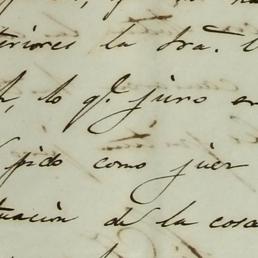 teriores la Sra.
lo q.e juro en
pido como juez
tuación de la cosa